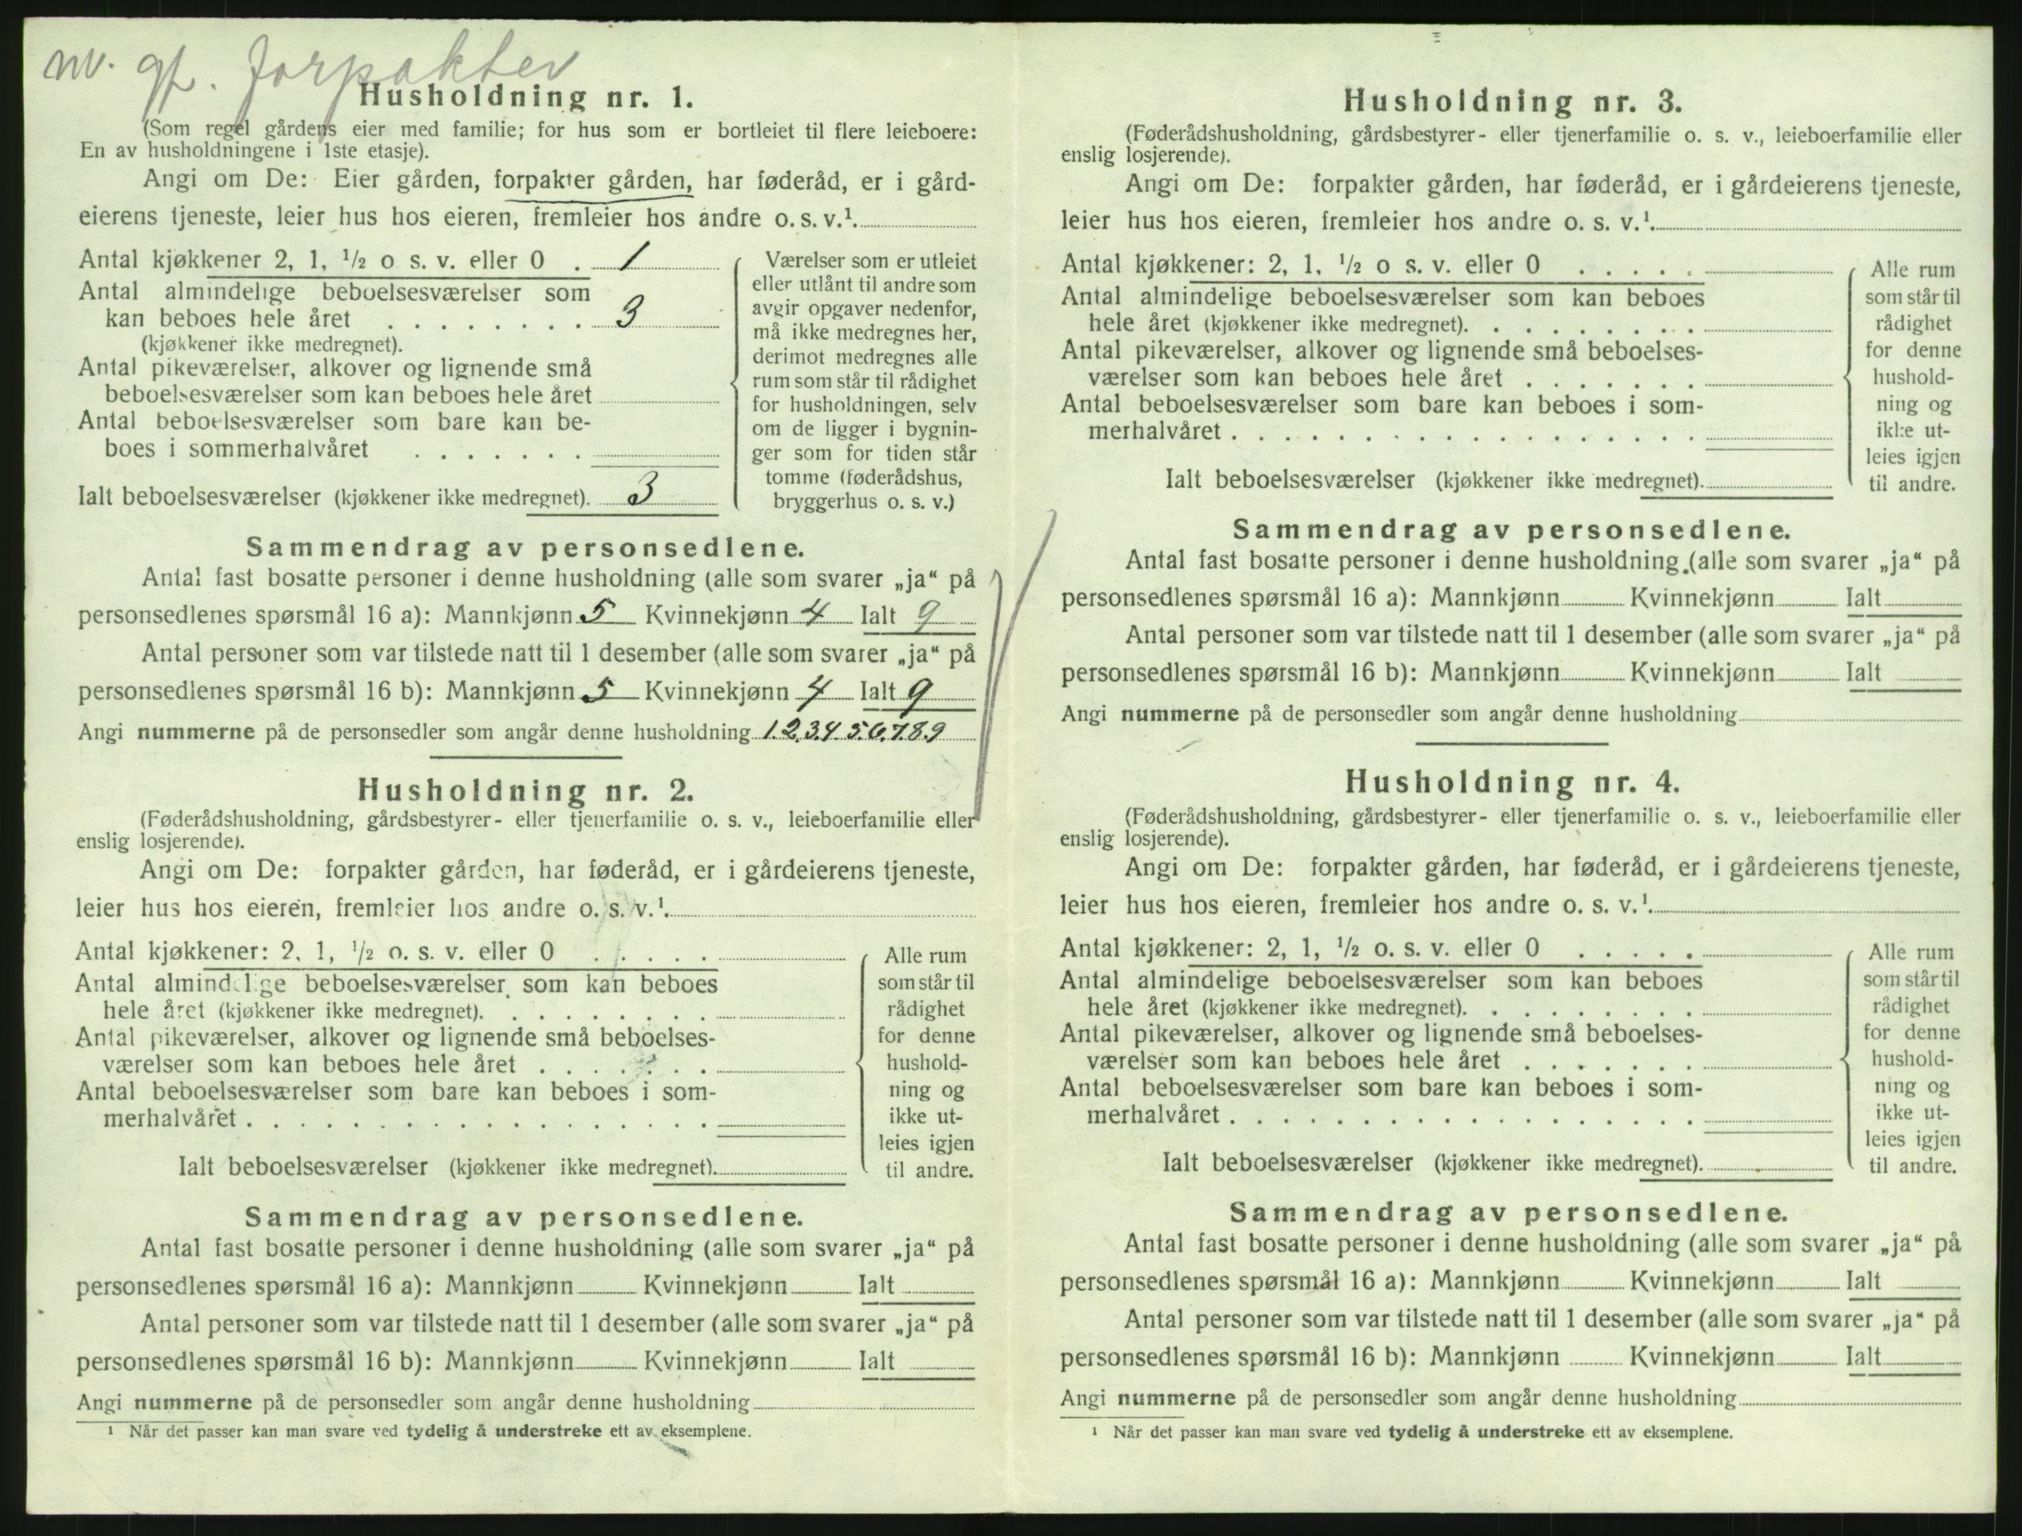 nv. gf. forpakter
Husholdning nr. 1.
(Som regel gårdens eier med familie; for hus som er bortleiet til flere leieboere:
En av husholdningene i 1ste etasje).
Angi om De: Eier gården, forpakter gården, har føderåd, er i gård-
eierens tjeneste, leier hus hos eieren, fremleier hos andre o. s. v.¹.
Antal kjøkkener 2, 1, ½ o s. v. eller 0 . 1
Antal almindelige beboelsesværelser som
kan beboes hele året . . . . . . . . 3
(kjøkkener ikke medregnet).
Antal pikeværelser, alkover og lignende små
beboelsesværelser som kan beboes hele året
Antal beboelsesværelser som bare kan be-
boes i sommerhalvåret . . . . . . .
Ialt beboelsesværelser (kjøkkener ikke medregnet). 3
Værelser som er utleiet
eller utlånt til andre som
avgir opgaver nedenfor,
må ikke medregnes her,
derimot medregnes alle
rum som står til rådighet
for husholdningen, selv
om de ligger i bygnin-
ger som for tiden står
tomme (føderådshus,
bryggerhus o. s. v.)
Sammendrag av personsedlene.
Antal fast bosatte personer i denne husholdning (alle som svarer „ja“ på
personsedlenes spørsmål 16 a): Mannkjønn 5 Kvinnekjønn 4 Ialt 9
Antal personer som var tilstede natt til 1 desember (alle som svarer „ja“ på
personsedlenes spørsmål 16 b): Mannkjønn 5 Kvinnekjønn 4 Ialt 9
Angi nummerne på de personsedler som angår denne husholdning 1.2.3.4 5.6.7.8.9
Husholdning nr. 2.
(Føderådshusholdning, gårdsbestyrer- eller tjenerfamilie o. s. v., leieboerfamilie eller
enslig losjerende).
Angi om De: forpakter gården, har føderåd, er i gårdeierens tjeneste,
leier hus hos eieren, fremleier hos andre o. s. v.¹.
Antal kjøkkener: 2, 1, ½ o. s. v. eller 0 . . . . .
Antal almindelige beboelsesværelser som kan beboes
hele året (kjøkkener ikke medregnet). . . . . . . . .
Antal pikeværelser, alkover og lignende små beboelses-
værelser som kan beboes hele året . . . . . . .
Antal beboelsesværelser som bare kan beboes i som-
merhalvåret . . . . . . . . . . . . . . . . . .
Ialt beboelsesværelser (kjøkkener ikke medregnet).
Alle rum
som står til
rådighet
for denne
hushold-
ning og
ikke ut-
leies igjen
til andre.
Sammendrag av personsedlene.
Antal fast bosatte personer i denne husholdning (alle som svarer „ja“ på
personsedlenes spørsmål 16 a): Mannkjønn Kvinnekjønn Ialt
Antal personer som var tilstede natt til 1 desember (alle som svarer „ja“ på
personsedlenes spørsmål 16 b): Mannkjønn Kvinnekjønn Ialt
Angi nummerne på de personsedler som angår denne husholdning
¹ Når det passer kan man svare ved tydelig å understreke ett av eksemplene.
Husholdning nr. 3.
(Føderådshusholdning, gårdsbestyrer- eller tjenerfamilie o. s. v., leieboerfamilie eller
enslig losjerende).
Angi om De: forpakter gården, har føderåd, er i gårdeierens tjeneste,
leier hus hos eieren, fremleier hos andre o. s. v.¹.
Antal kjøkkener: 2, 1, ½ o s. v. eller 0 . . . . .
Antal almindelige beboelsesværelser som kan beboes
hele året (kjøkkener ikke medregnet). . . . . . . . .
Antal pikeværelser, alkover og lignende små beboelses-
værelser som kan beboes hele året . . . . . . .
Antal beboelsesværelser som bare kan beboes i som-
merhalvåret . . . . . . . . . . . . . . . . . .
Ialt beboelsesværelser (kjøkkener ikke medregnet).
Alle rum
som står til
rådighet
for denne
hushold-
ning og
ikke ut-
leies igjen
til andre.
Sammendrag av personsedlene.
Antal fast bosatte personer i denne husholdning (alle som svarer „ja“ på
personsedlenes spørsmål 16 a): Mannkjønn Kvinnekjønn Ialt
Antal personer som var tilstede natt til 1 desember (alle som svarer „ja“ på
personsedlenes spørsmål 16 b): Mannkjønn Kvinnekjønn Ialt
Angi nummerne på de personsedler som angår denne husholdning
Husholdning nr. 4.
(Føderådshusholdning, gårdsbestyrer- eller tjenerfamilie o. s. v., leieboerfamilie eller
enslig losjerende).
Angi om De: forpakter gården, har føderåd, er i gårdeierens tjeneste,
leier hus hos eieren, fremleier hos andre o. s. v.¹.
Antal kjøkkener: 2, 1, ½ o. s. v. eller 0 . . . . .
Antal almindelige beboelsesværelser som kan beboes
hele året (kjøkkener ikke medregnet). . . . . . . . .
Antal pikeværelser, alkover og lignende små beboelses-
værelser som kan beboes hele året . . . . . . .
Antal beboelsesværelser som bare kan beboes i som-
merhalvåret . . . . . . . . . . . . . . . . . .
Ialt beboelsesværelser (kjøkkener ikke medregnet).
Alle rum
som står til
rådighet
for denne
hushold-
ning og
ikke ut-
leies igjen
til andre.
Sammendrag av personsedlene.
Antal fast bosatte personer i denne husholdning (alle som svarer „ja“ på
personsedlenes spørsmål 16 a): Mannkjønn Kvinnekjønn Ialt
Antal personer som var tilstede natt til 1 desember (alle som svarer „ja“ på
personsedlenes spørsmål 16 b): Mannkjønn Kvinnekjønn Ialt
Angi nummerne på de personsedler som angår denne husholdning
¹ Når det passer kan man svare ved tydelig å understreke ett av eksemplene.